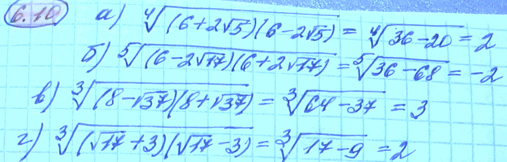 6.10 а) ⁴√((6+2√5)(6-2√5)) = ⁴√(36-20) = 2
б) ⁵√((6-2√17)(6+2√17)) = ⁵√(36-68) = -2
в) ³√((8-√37)(8+√37)) = ³√(64-37) = 3
г) ³√((√17+3)(√17-3)) = ³√(17-9) = 2